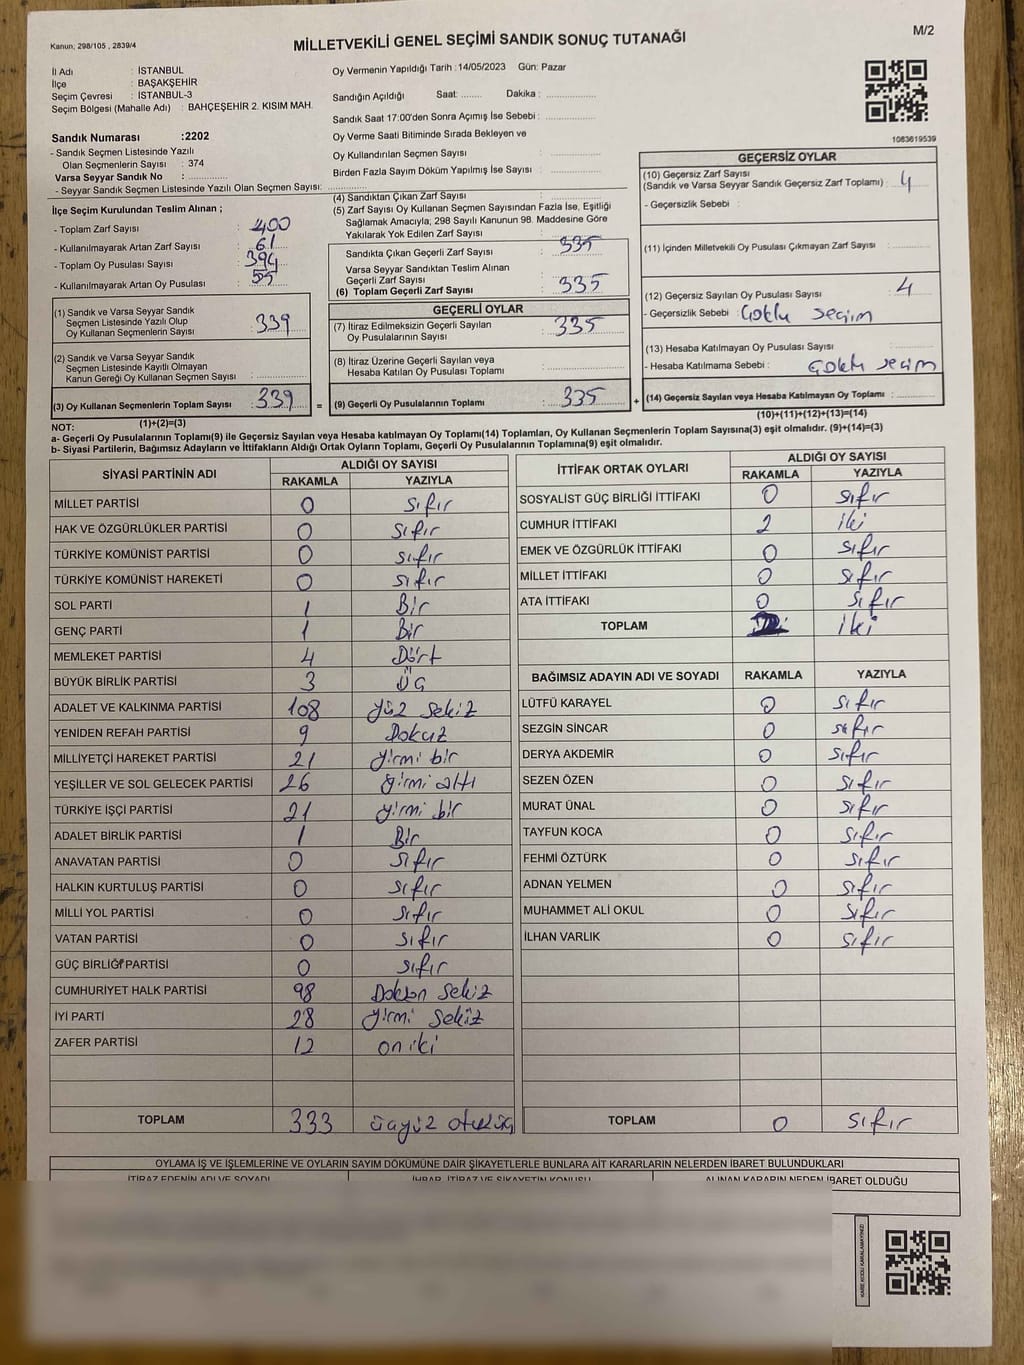 M/2
Kanun; 298/105 , 2839/4
MİLLETVEKİLİ GENEL SEÇİMİ SANDIK SONUÇ TUTANAĞI
İl Adı : İSTANBUL
İlçe : BAŞAKŞEHİR
Seçim Çevresi : İSTANBUL-3
Seçim Bölgesi (Mahalle Adı) : BAHÇEŞEHİR 2. KISIM MAH.
Sandık Numarası :2202
- Sandık Seçmen Listesinde Yazılı
Olan Seçmenlerin Sayısı : 374
Varsa Seyyar Sandık No :
- Seyyar Sandık Seçmen Listesinde Yazılı Olan Seçmen Sayısı:
Oy Vermenin Yapıldığı Tarih :14/05/2023 Gün: Pazar
Sandığın Açıldığı Saat: Dakika :
Sandık Saat 17:00'den Sonra Açımış İse Sebebi :
Oy Verme Saati Bitiminde Sırada Bekleyen ve
Oy Kullandırılan Seçmen Sayısı :
Birden Fazla Sayım Döküm Yapılmış İse Sayısı :
1083619539
İlçe Seçim Kurulundan Teslim Alınan ;
- Toplam Zarf Sayısı : 400
- Kullanılmayarak Artan Zarf Sayısı : 61
- Toplam Oy Pusulası Sayısı : 394
- Kullanılmayarak Artan Oy Pusulası : 55
(1) Sandık ve Varsa Seyyar Sandık
Seçmen Listesinde Yazılı Olup
Oy Kullanan Seçmenlerin Sayısı : 339
(2) Sandık ve Varsa Seyyar Sandık
Seçmen Listesinde Kayıtlı Olmayan
Kanun Gereği Oy Kullanan Seçmen Sayısı :
(3) Oy Kullanan Seçmenlerin Toplam Sayısı : 339
(1)+(2)=(3)
(4) Sandıktan Çıkan Zarf Sayısı :
(5) Zarf Sayısı Oy Kullanan Seçmen Sayısından Fazla İse, Eşitliği
Sağlamak Amacıyla; 298 Sayılı Kanunun 98. Maddesine Göre
Yakılarak Yok Edilen Zarf Sayısı :
Sandıkta Çıkan Geçerli Zarf Sayısı : 335
Varsa Seyyar Sandıktan Teslim Alınan
Geçerli Zarf Sayısı
(6) Toplam Geçerli Zarf Sayısı : 335
GEÇERLİ OYLAR
(7) İtiraz Edilmeksizin Geçerli Sayılan
Oy Pusulalarının Sayısı : 335
(8) İtiraz Üzerine Geçerli Sayılan veya
Hesaba Katılan Oy Pusulası Toplamı :
= (9) Geçerli Oy Pusulalarının Toplamı : 335
GEÇERSİZ OYLAR
(10) Geçersiz Zarf Sayısı
(Sandık ve Varsa Seyyar Sandık Geçersiz Zarf Toplamı) : 4
- Geçersizlik Sebebi :
(11) İçinden Milletvekili Oy Pusulası Çıkmayan Zarf Sayısı :
(12) Geçersiz Sayılan Oy Pusulası Sayısı : 4
- Geçersizlik Sebebi : Çoklu seçim
(13) Hesaba Katılmayan Oy Pusulası Sayısı :
- Hesaba Katılmama Sebebi : Çoklu seçim
+ (14) Geçersiz Sayılan veya Hesaba Katılmayan Oy Toplamı :
(10)+(11)+(12)+(13)=(14)
NOT:
a- Geçerli Oy Pusulalarının Toplamı(9) ile Geçersiz Sayılan veya Hesaba katılmayan Oy Toplamı(14) Toplamları, Oy Kullanan Seçmenlerin Toplam Sayısına(3) eşit olmalıdır. (9)+(14)=(3)
b- Siyasi Partilerin, Bağımsız Adayların ve İttifakların Aldığı Ortak Oyların Toplamı, Geçerli Oy Pusulalarının Toplamına(9) eşit olmalıdır.
SİYASİ PARTİNİN ADI ALDIĞI OY SAYISI
RAKAMLA YAZIYLA
MİLLET PARTİSİ 0 sıfır
HAK VE ÖZGÜRLÜKLER PARTİSİ 0 sıfır
TÜRKİYE KOMÜNİST PARTİSİ 0 sıfır
TÜRKİYE KOMÜNİST HAREKETİ 0 sıfır
SOL PARTİ 1 Bir
GENÇ PARTİ 1 Bir
MEMLEKET PARTİSİ 4 Dört
BÜYÜK BİRLİK PARTİSİ 3 Üç
ADALET VE KALKINMA PARTİSİ 108 yüz sekiz
YENİDEN REFAH PARTİSİ 9 Dokuz
MİLLİYETÇİ HAREKET PARTİSİ 21 yirmi bir
YEŞİLLER VE SOL GELECEK PARTİSİ 26 yirmi altı
TÜRKİYE İŞÇİ PARTİSİ 21 yirmi bir
ADALET BİRLİK PARTİSİ 1 Bir
ANAVATAN PARTİSİ 0 sıfır
HALKIN KURTULUŞ PARTİSİ 0 sıfır
MİLLİ YOL PARTİSİ 0 sıfır
VATAN PARTİSİ 0 sıfır
GÜÇ BİRLİĞİ PARTİSİ 0 sıfır
CUMHURİYET HALK PARTİSİ 98 Doksan sekiz
İYİ PARTİ 28 yirmi sekiz
ZAFER PARTİSİ 12 on iki
TOPLAM 333 üçyüz otuzüç
İTTİFAK ORTAK OYLARI ALDIĞI OY SAYISI
RAKAMLA YAZIYLA
SOSYALİST GÜÇ BİRLİĞİ İTTİFAKI 0 sıfır
CUMHUR İTTİFAKI 2 iki
EMEK VE ÖZGÜRLÜK İTTİFAKI 0 sıfır
MİLLET İTTİFAKI 0 sıfır
ATA İTTİFAKI 0 sıfır
TOPLAM iki
BAĞIMSIZ ADAYIN ADI VE SOYADI RAKAMLA YAZIYLA
LÜTFÜ KARAYEL 0 sıfır
SEZGİN SİNCAR 0 sıfır
DERYA AKDEMİR 0 sıfır
SEZEN ÖZEN 0 sıfır
MURAT ÜNAL 0 sıfır
TAYFUN KOCA 0 sıfır
FEHMİ ÖZTÜRK 0 sıfır
ADNAN YELMEN 0 sıfır
MUHAMMET ALİ OKUL 0 sıfır
İLHAN VARLIK 0 sıfır
TOPLAM 0 sıfır
OYLAMA İŞ VE İŞLEMLERİNE VE OYLARIN SAYIM DÖKÜMÜNE DAİR ŞİKAYETLERLE BUNLARA AİT KARARLARIN NELERDEN İBARET BULUNDUKLARI
İTİRAZ EDENİN ADI VE SOYADI İHBAR, İTİRAZ VE ŞİKAYETİN KONUSU ALINAN KARARIN NEDEN İBARET OLDUĞU
KARE KODU KARALAMAYINIZ!